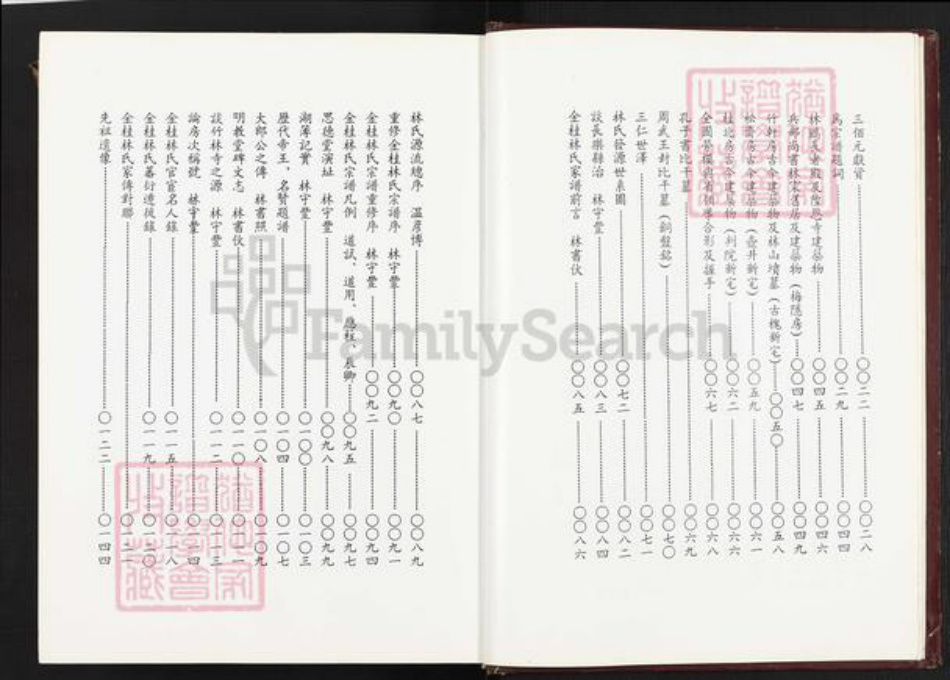 三佰元獻資……〇〇二二……〇〇二八
為宗譜題詞……〇〇二九……〇〇四四
建築物……〇〇四五……〇〇四六
兵部尚書林宋舊居及建築物（梅隱房）……〇〇四七……〇〇四九
竹軒房古今建築物及林山墳墓（古槐新宅）……〇〇五〇……〇〇五八
松齋房古今建築物（壺井新宅）……〇〇五九……〇〇六一
桂北房古今建築物（判院新宅）……〇〇六二……〇〇六六
合影及握手……〇〇六七……〇〇六八
孔子書比干墓……〇〇六九
周武王封比干墓（銅盤銘）……〇〇七〇
三仁世澤……〇〇七一
林氏發源世系圖……〇〇七二……〇〇八二
談長樂縣治　林守豐……〇〇八三……〇〇八四
金桂林氏家譜前言　林書伙……〇〇八五……〇〇八六
林氏源流總序　溫彥博……〇〇八七……〇〇八九
重修金桂林氏宗譜序　林守豐……〇〇九〇……〇〇九一
金桂林氏宗譜重修序　林守豐……〇〇九二……〇〇九四
金桂林氏宗譜凡例　道試、道用、應桂、長卿……〇〇九五……〇〇九七
思德堂演址　林守豐……〇〇九八……〇〇九九
湖薄記實　林守豐……〇一〇〇……〇一〇三
歷代帝王、名賢題譜……〇一〇四……〇一〇七
大郎公之傳　林書照……〇一〇八……〇一〇九
明教堂碑文志　林書伙……〇一一〇……〇一一一
談竹林寺之源　林守豐……〇一一二……〇一一三
論房次稱號　林守豐……〇一一四
金桂林氏官宦名人錄……〇一一五……〇一一八
金桂林氏蕃衍遷徙錄……〇一一九……〇一二〇
金桂林氏家傳對聯……〇一二一
先祖遺像……〇一二二……〇一四四
FamilySearch